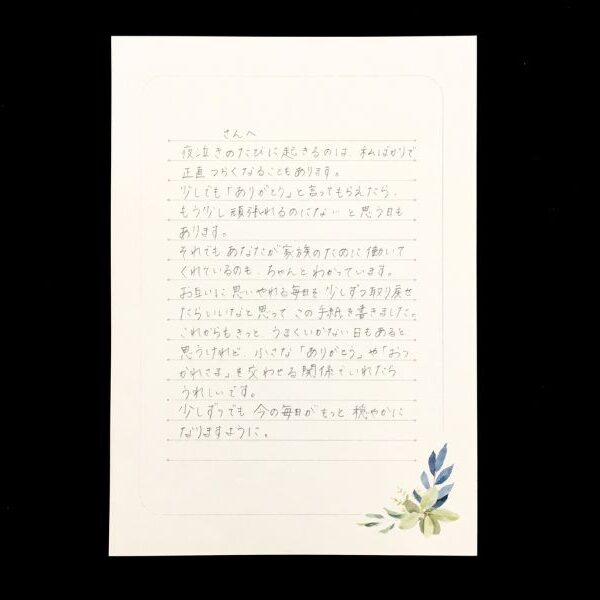 さんへ
夜泣きのたびに起きるのは、私ばかりで
正直つらくなることもあります。
少しでも「ありがとう」と言ってもらえたら、
もう少し頑張れるのにな、と思う日も
あります。
それでもあなたが家族のために働いて
くれているのも、ちゃんとわかっています。
お互いに思いやれる毎日を少しずつ取り戻せ
たらいいなと思って この手紙を書きました。
これからもきっと、うまくいかない日もあると
思うけれど、小さな「ありがとう」や「おつ
かれさま」を交わせる関係でいれたら
うれしいです。
少しずつでも 今の毎日がもっと 穏やかに
なりますように。